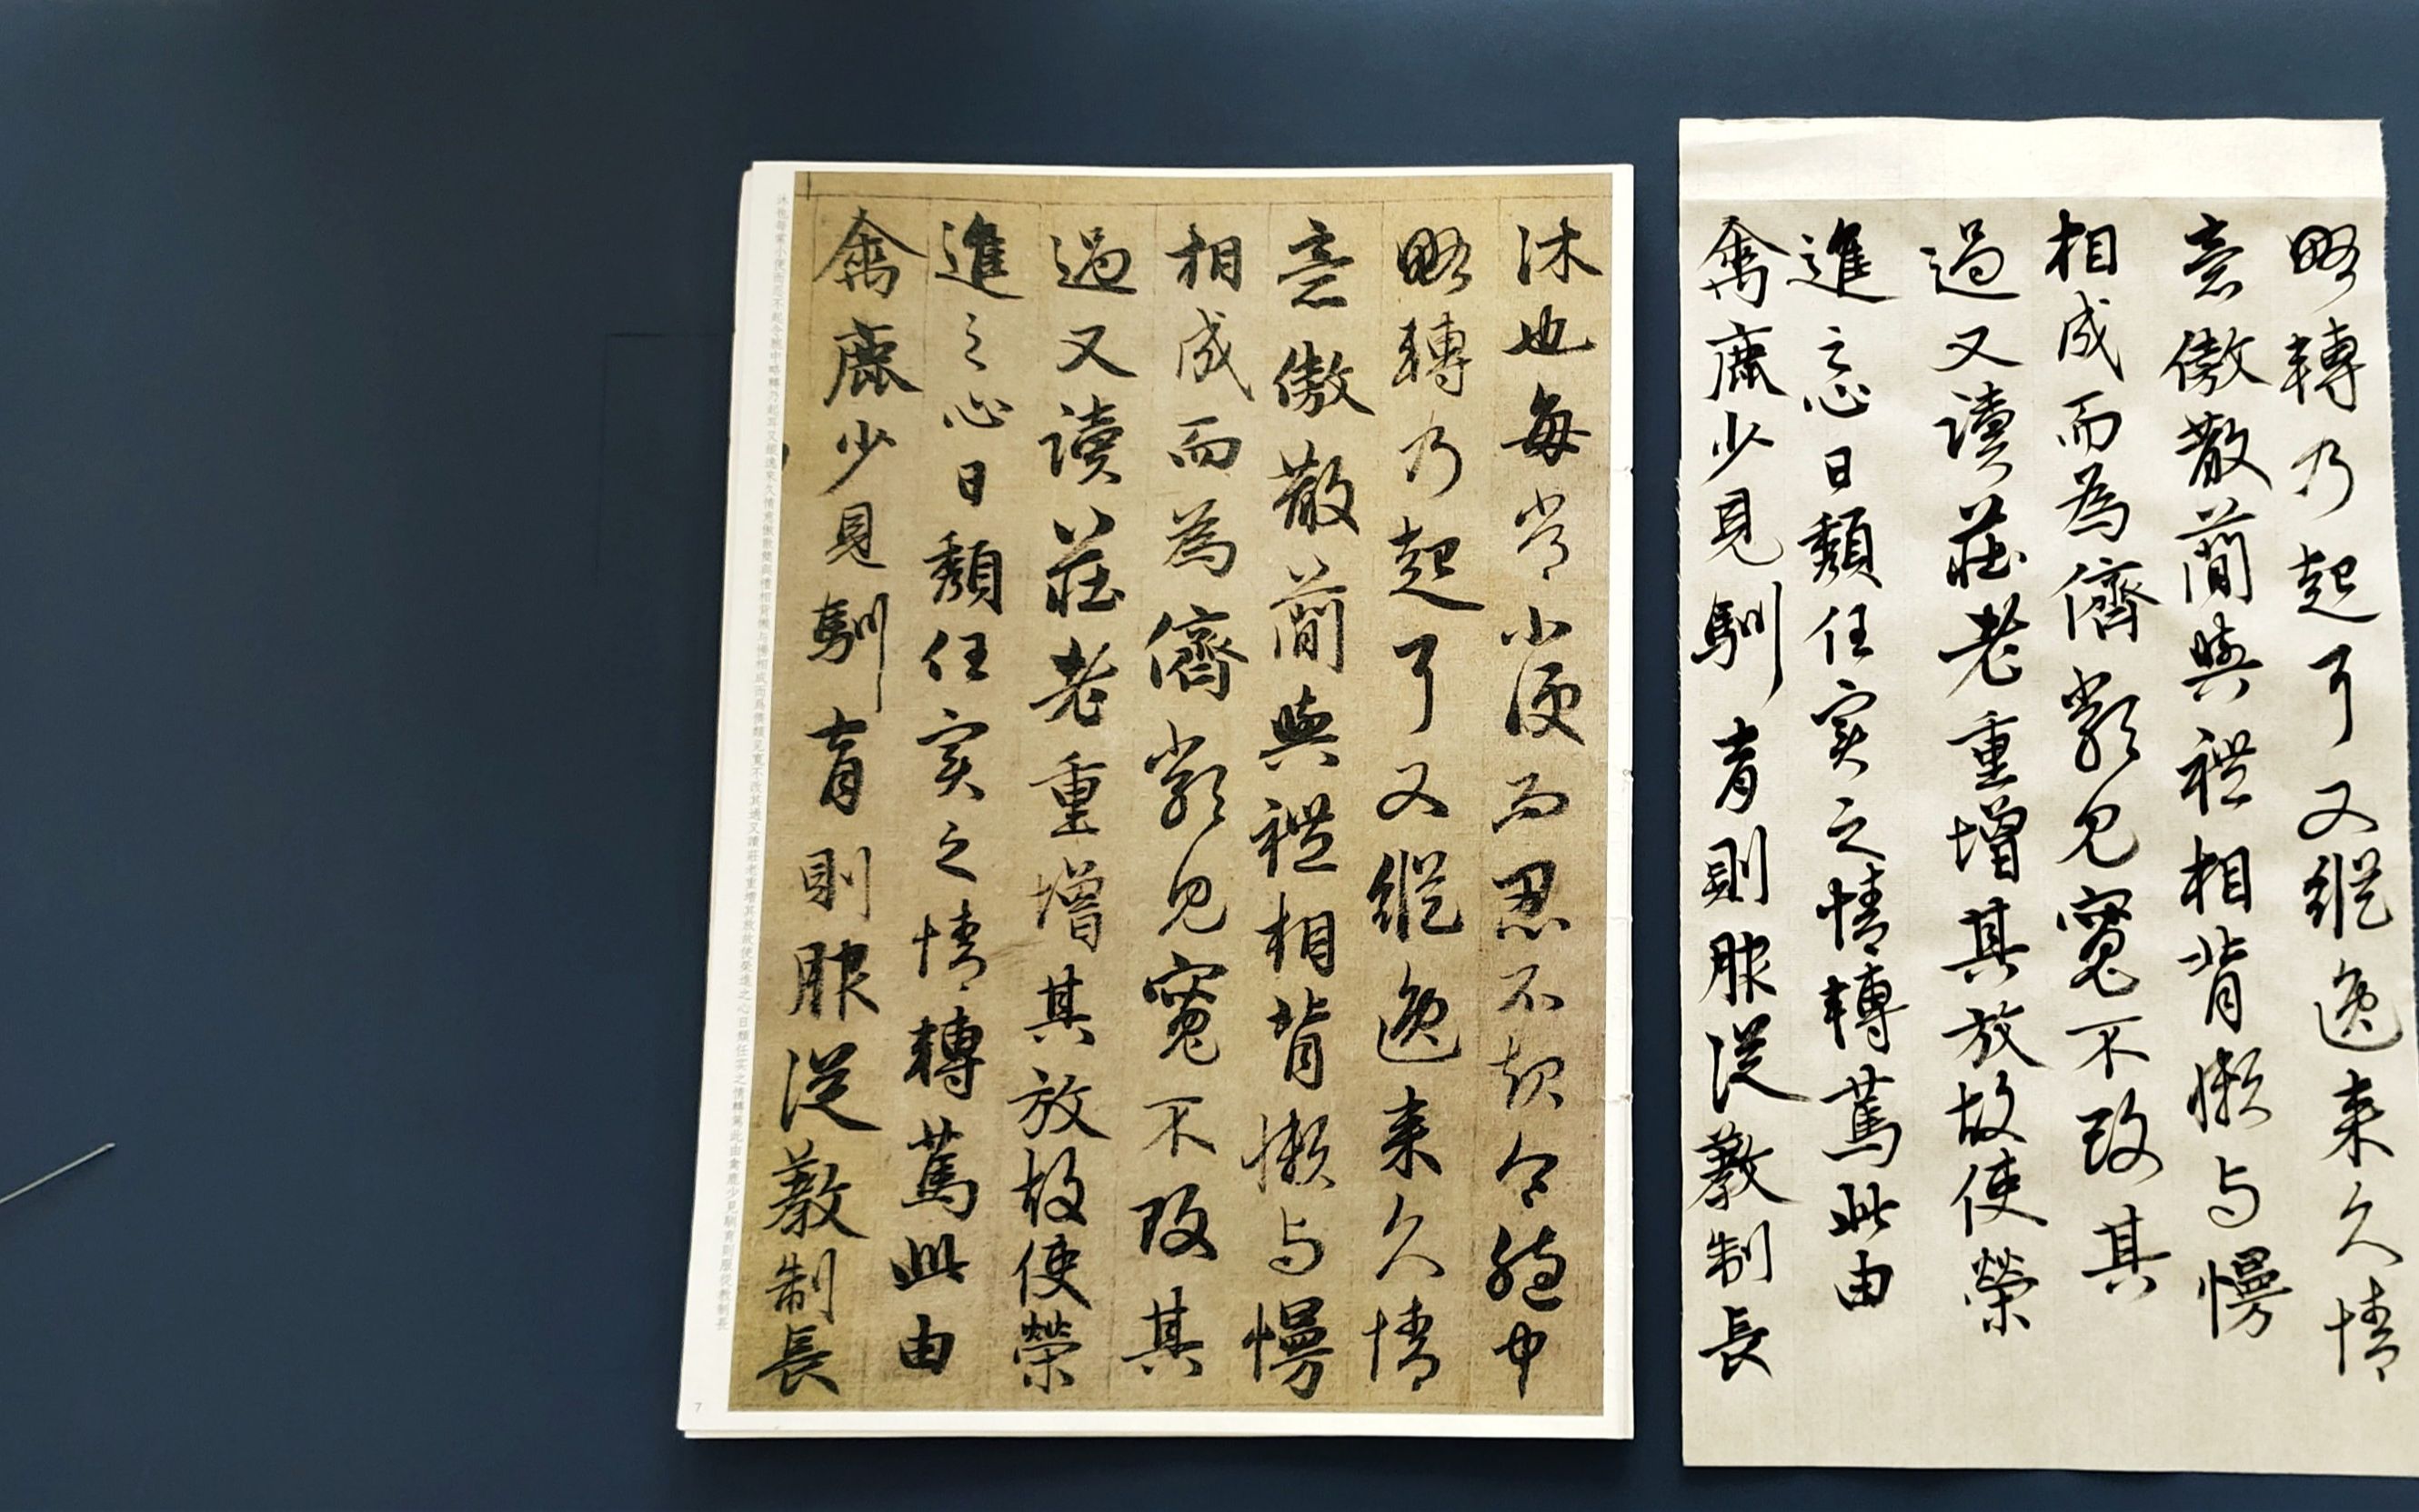 沐也每常小便而忍不起令胞中
略轉乃起耳又縱逸来久情
意傲散簡與禮相背懶与慢
相成而為儕類見寬不改其
過又讀莊老重增其放故使榮
進之心日頹任實之情轉篤此由
禽鹿少見馴育則服從教制長
沐也每常小便而忍不起令胞中略轉乃起耳又縱逸来久情意傲散簡與禮相背懶与慢相成而爲儕類見寬不改其過又讀莊老重增其放故使榮進之心日頹任实之情轉篤此由禽鹿少見馴育則服從教制長
7
略轉乃起耳又縱逸来久情
意傲散簡與禮相背懶与慢
相成而為儕類見寬不改其
過又讀莊老重增其放故使榮
進之心日頹任實之情轉篤此由
禽鹿少見馴育則服從教制長